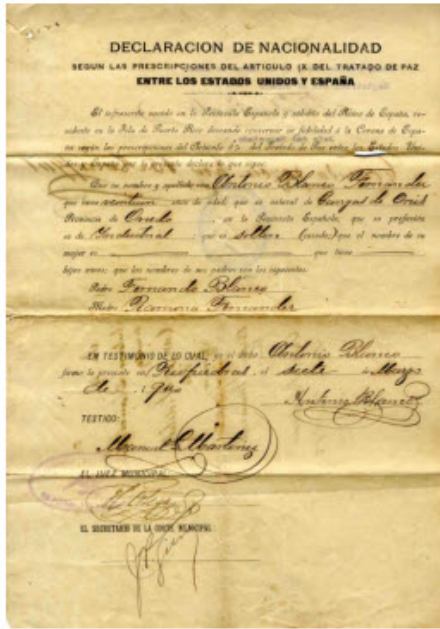 DECLARACION DE NACIONALIDAD
SEGUN LAS PRESCRIPCIONES DEL ARTICULO IX DEL TRATADO DE PAZ
ENTRE LOS ESTADOS UNIDOS Y ESPAÑA
El infrascrito nacido en la Península Española y súbdito del Reino de España, re-
sidente en la Isla de Puerto Rico deseando conservar su fidelidad á la Corona de Espa-
ña según las prescripciones del Artículo del Tratado de Paz entre los Estados Uni-
dos y España por la presente declara lo que sigue:
Que su nombre y apellido son Antonio Blanco Fernandez
que tiene años de edad, que es natural de Cangas de Onís
Provincia de Oviedo, en la Península Española, que su profesión
es de Industrial que es soltero (casado) que el nombre de su
mujer es que tiene
hijos vivos; que los nombres de sus padres son los siguientes:
Padre Fernando Blanco
Madre Ramona Fernandez
EN TESTIMONIO DE LO CUAL, yo el dicho Antonio Blanco
firmo la presente en el siete de Marzo
de 1900
Antonio Blanco
TESTIGO:
Manuel Martinez
EL JUEZ MUNICIPAL:
EL SECRETARIO DE LA CORTE MUNICIPAL: